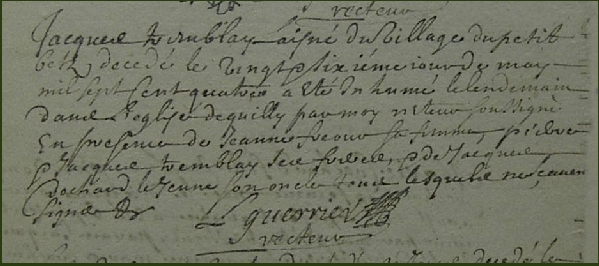 recteur
Jacques tremblay laigné du village du petit
betz, decedé le vingt & sixième jour de may
mil sept cent quatre a eté In humé le lendemain
dans l'eglise de quilly par moy recteur soussigné
En presence de Jeanne sa femme, pierre
& Jacques tremblay ses freres, & de Jacques
Bochard le jeune son oncle tous lesquels ne scavent
signer
L guerrier
recteur
decedé le